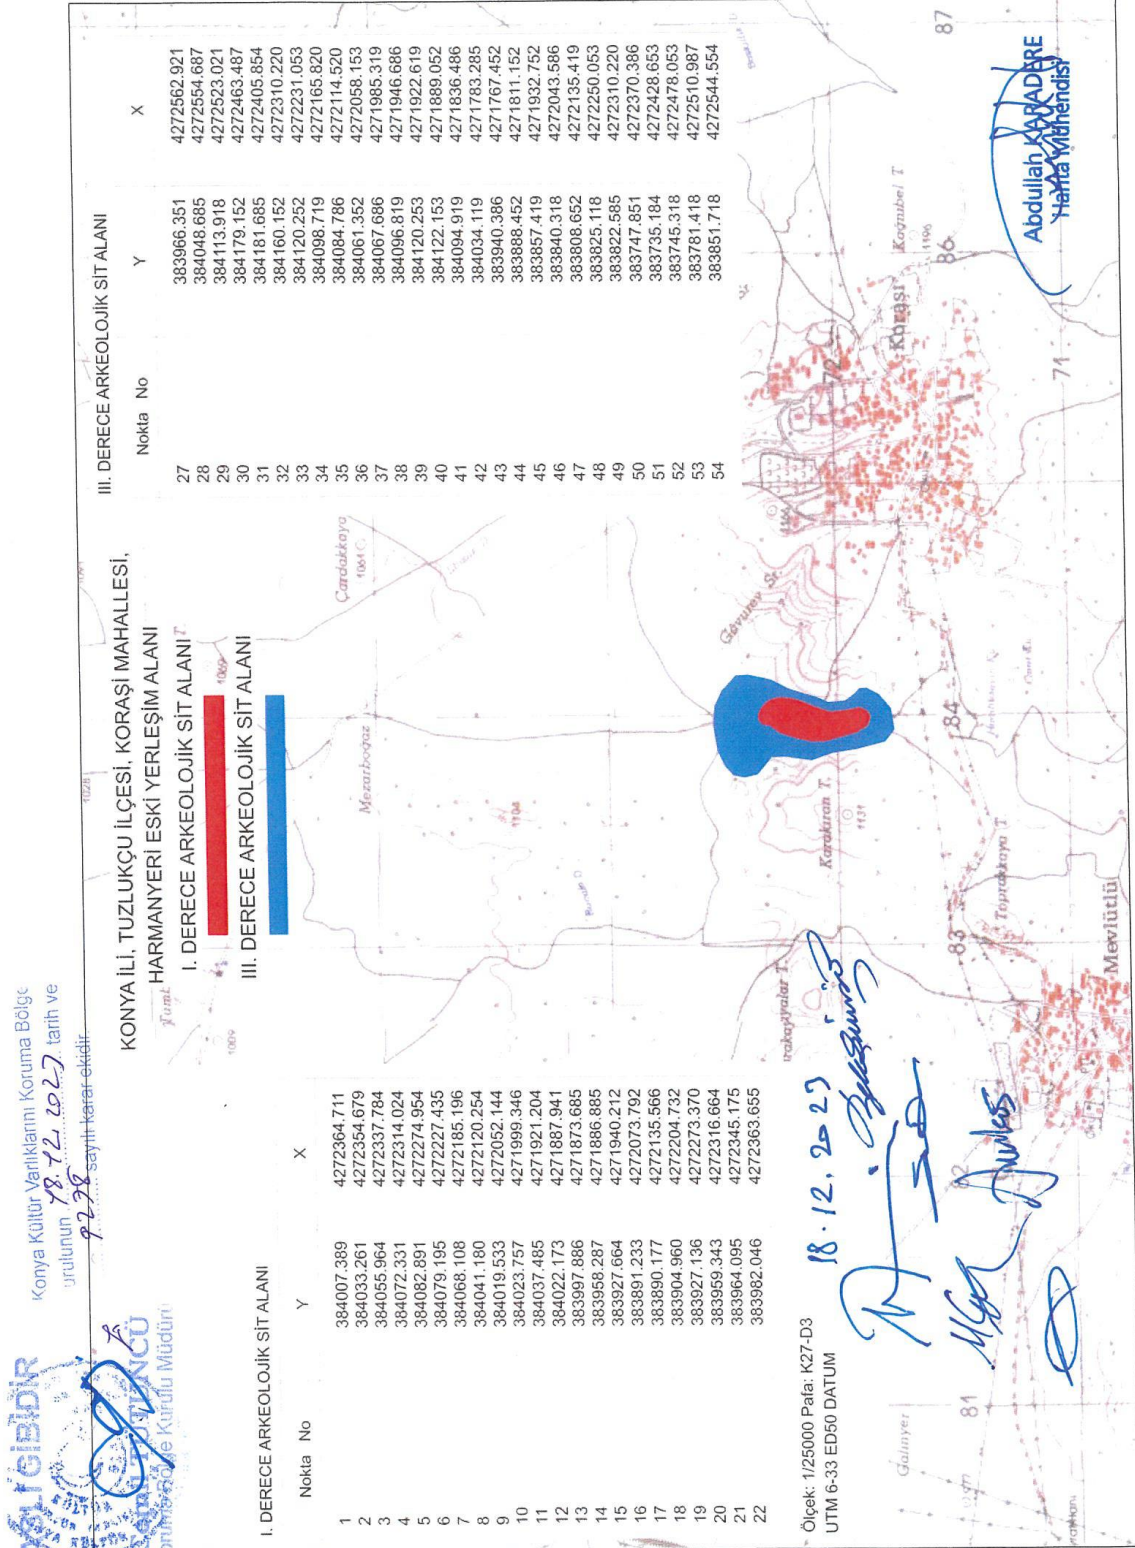 ASLI GİBİDİR
Konya Kültür Varlıklarını Koruma Bölge
18.12.2023 tarih ve
sayılı karar ekidir.
TÜTÜNCÜ
Bölge Kurulu Müdürü
KONYA İLİ, TUZLUKÇU İLÇESİ, KORAŞİ MAHALLESİ,
HARMANYERİ ESKİ YERLEŞİM ALANI
I. DERECE ARKEOLOJİK SİT ALANI
III. DERECE ARKEOLOJİK SİT ALANI
I. DERECE ARKEOLOJİK SİT ALANI
Nokta No Y X
1 384007.389 4272364.711
2 384033.261 4272354.679
3 384055.964 4272337.784
4 384072.331 4272314.024
5 384082.891 4272274.954
6 384079.195 4272227.435
7 384068.108 4272185.196
8 384041.180 4272120.254
9 384019.533 4272052.144
10 384023.757 4271999.346
11 384037.485 4271921.204
12 384022.173 4271887.941
13 383997.886 4271873.685
14 383958.287 4271886.885
15 383927.664 4271940.212
16 383891.233 4272073.792
17 383890.177 4272135.566
18 383904.960 4272204.732
19 383927.136 4272273.370
20 383959.343 4272316.664
21 383964.095 4272345.175
22 383982.046 4272363.655
III. DERECE ARKEOLOJİK SİT ALANI
Nokta No Y X
27 383966.351 4272562.921
28 384048.685 4272554.687
29 384113.918 4272523.021
30 384179.152 4272463.487
31 384181.685 4272405.854
32 384160.152 4272310.220
33 384120.252 4272231.053
34 384098.719 4272165.820
35 384084.786 4272114.520
36 384061.352 4272058.153
37 384067.686 4271985.319
38 384096.819 4271946.686
39 384120.253 4271922.619
40 384122.153 4271889.052
41 384094.919 4271836.486
42 384034.119 4271783.285
43 383940.386 4271767.452
44 383888.452 4271811.152
45 383857.419 4271932.752
46 383840.318 4272043.586
47 383808.652 4272135.419
48 383825.118 4272250.053
49 383822.585 4272310.220
50 383747.851 4272370.386
51 383735.184 4272428.653
52 383745.318 4272478.053
53 383781.418 4272510.987
54 383851.718 4272544.554
Ölçek: 1/25000 Pafa: K27-D3
UTM 6-33 ED50 DATUM
18.12.2023
Çardakkaya
1061
Mezarboğaz
1069
1028
1009
1104
Gâvurev Sr.
Karakıran T.
1131
Toprakkaya T
Mevlütlü
Koraşi
Koğnubel T
1196
Galinyer
81
82
83
84
86
87
71
72
Abdullah KARADERE
Harita Mühendisi